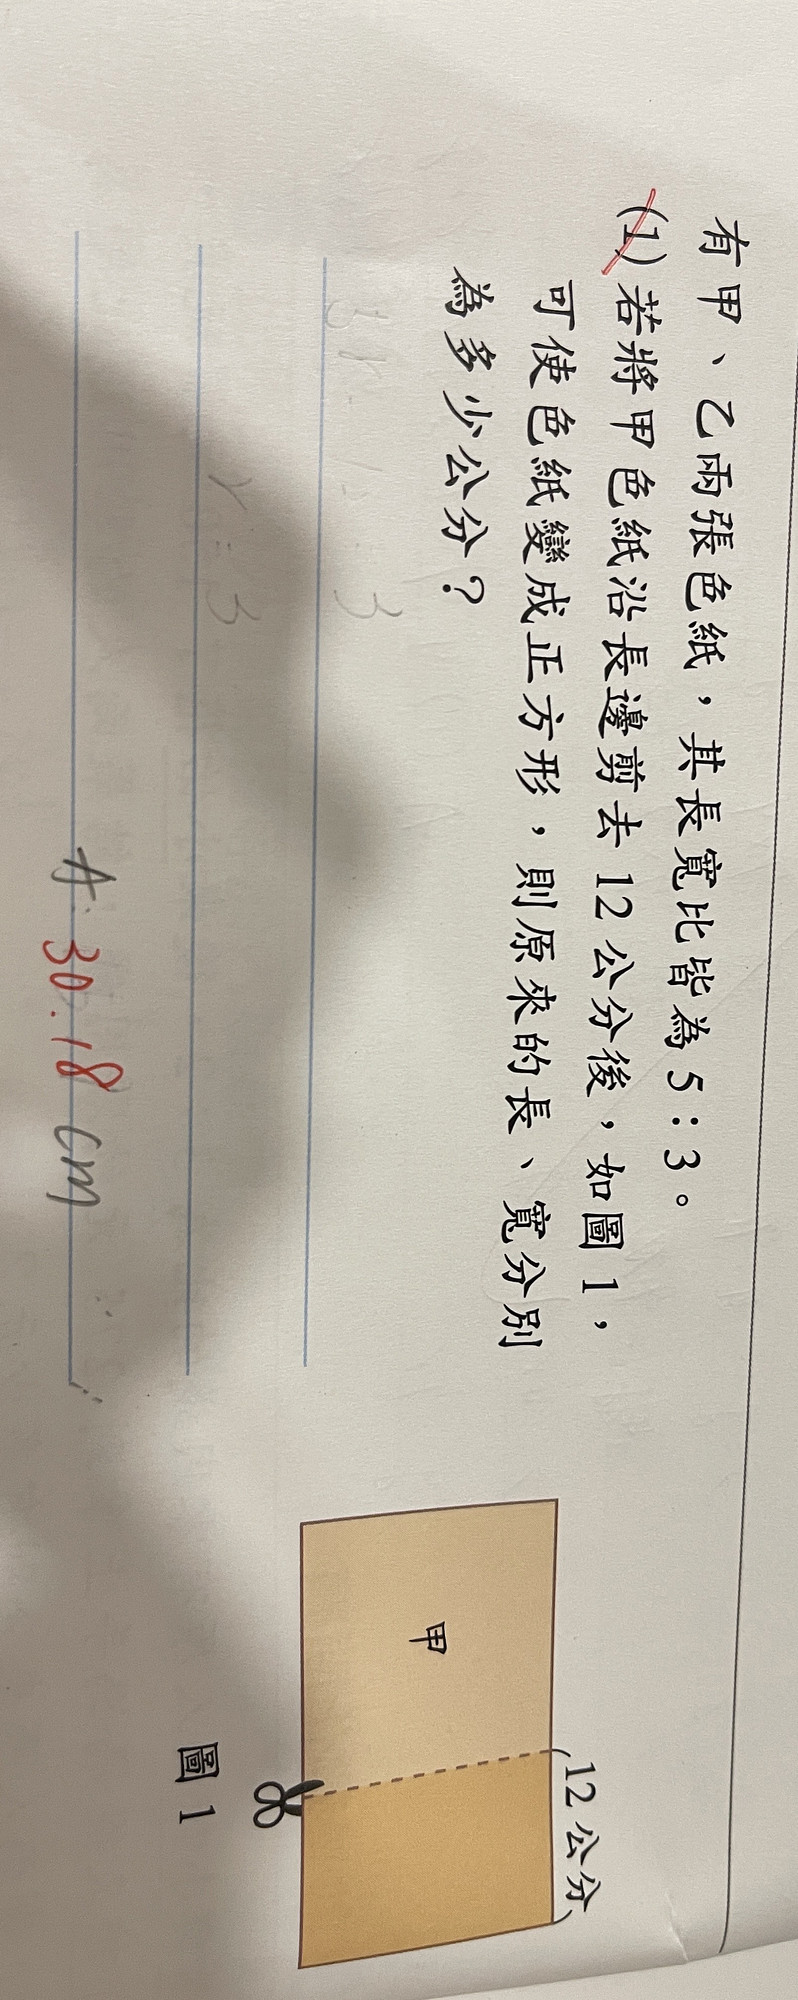 有甲、乙兩張色紙，其長寬比皆為5:3。
(1)若將甲色紙沿長邊剪去12公分後，如圖1，
可使色紙變成正方形，則原來的長、寬分別
為多少公分？
3
r=3
A:30.18 cm
12公分
甲
圖1